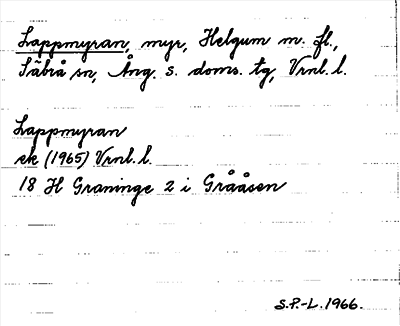 Lappmyran, myr, Helgum m. fl.,
Säbrå sn, Ång. s. doms. tg, Vrnl. l.
Lappmyran
ek (1965) Vrnl. l.
18 H Graninge 2 i Grååsen
S.P.-L. 1966.